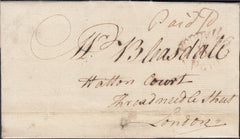 Paid
Wm Bleasdale
Hatton Court
Threadneedle Street
London